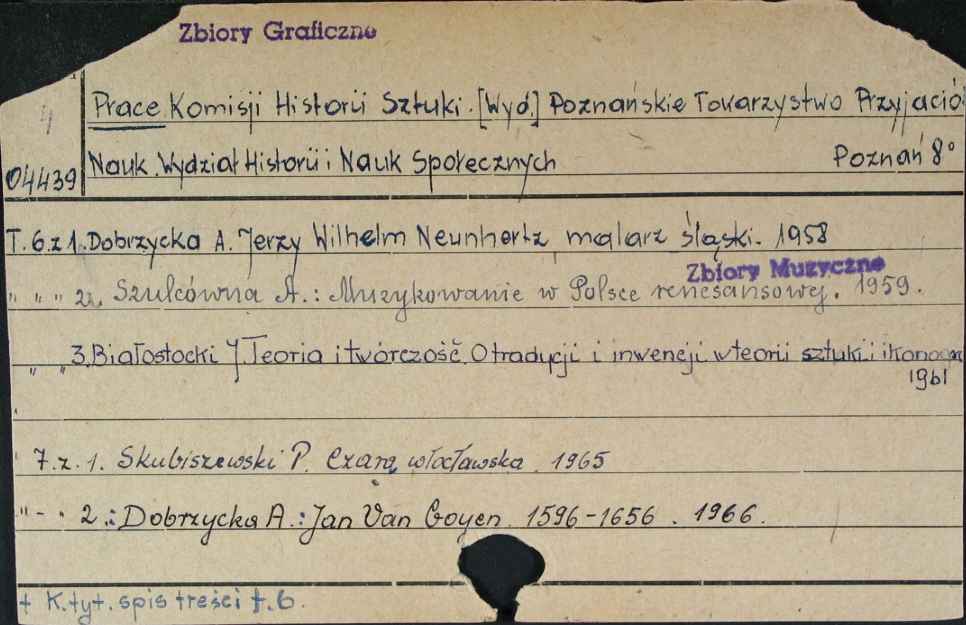 Zbiory Graficzne
4
Prace Komisji Historii Sztuki. [Wyd.] Poznańskie Towarzystwo Przyjació
04439 Nauk. Wydział Historii i Nauk Społecznych Poznań 8°
T. 6. z 1. Dobrzycka A. Jerzy Wilhelm Neunhertz malarz śląski. 1958
Zbiory Muzyczne
" " " 2. Szulcówna A.: Muzykowanie w Polsce renesansowej. 1959.
" " 3. Białostocki J. Teoria i twórczość. O tradycji i inwencji w teorii sztuki i ikonogr
1961
7. z. 1. Skubiszewski P. Czara włocławska. 1965
" - " 2.: Dobrzycka A.: Jan Van Goyen. 1596-1656. 1966.
+ K. tyt. spis treści t. 6.